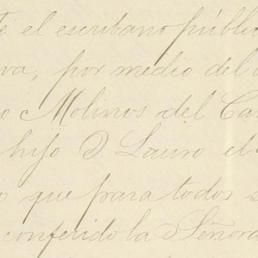 te el escribano públi
va, por medio del
o Molinos del Ca
hijo D. Lauro el
o que para todos s
conferido la Señora